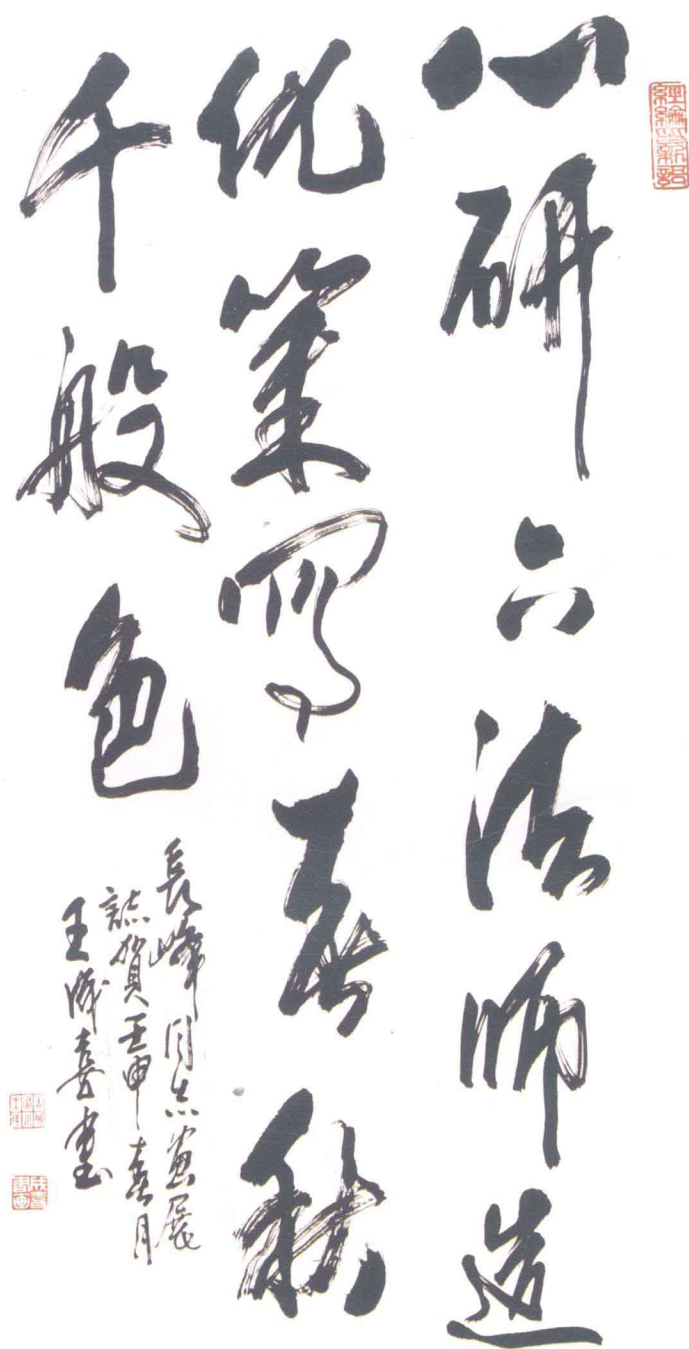 心研六法師造
化筆寫春秋
千般色
長峰同志畫展
誌賀壬申春月
王成喜書
成喜書画